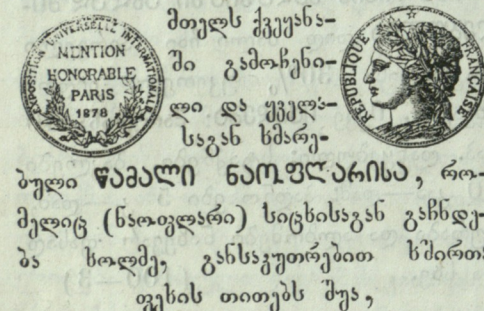 EXPOSITION UNIVERSELLE INTERNATIONALE
MENTION
HONORABLE
PARIS
1878
REPUBLIQUE FRANÇAISE
მთელს ქვეყანა-
ში გამოჩენი-
ლი და ყველა-
საგან ხმარე-
ბული წამალი ნაოფლარისა, რო-
მელიც (ნაოფლარი) სიცხისაგან გაჩნდე-
ბა ხოლმე, განსაკუთრებით ხშირთა
ფეხის თითებს შუა,